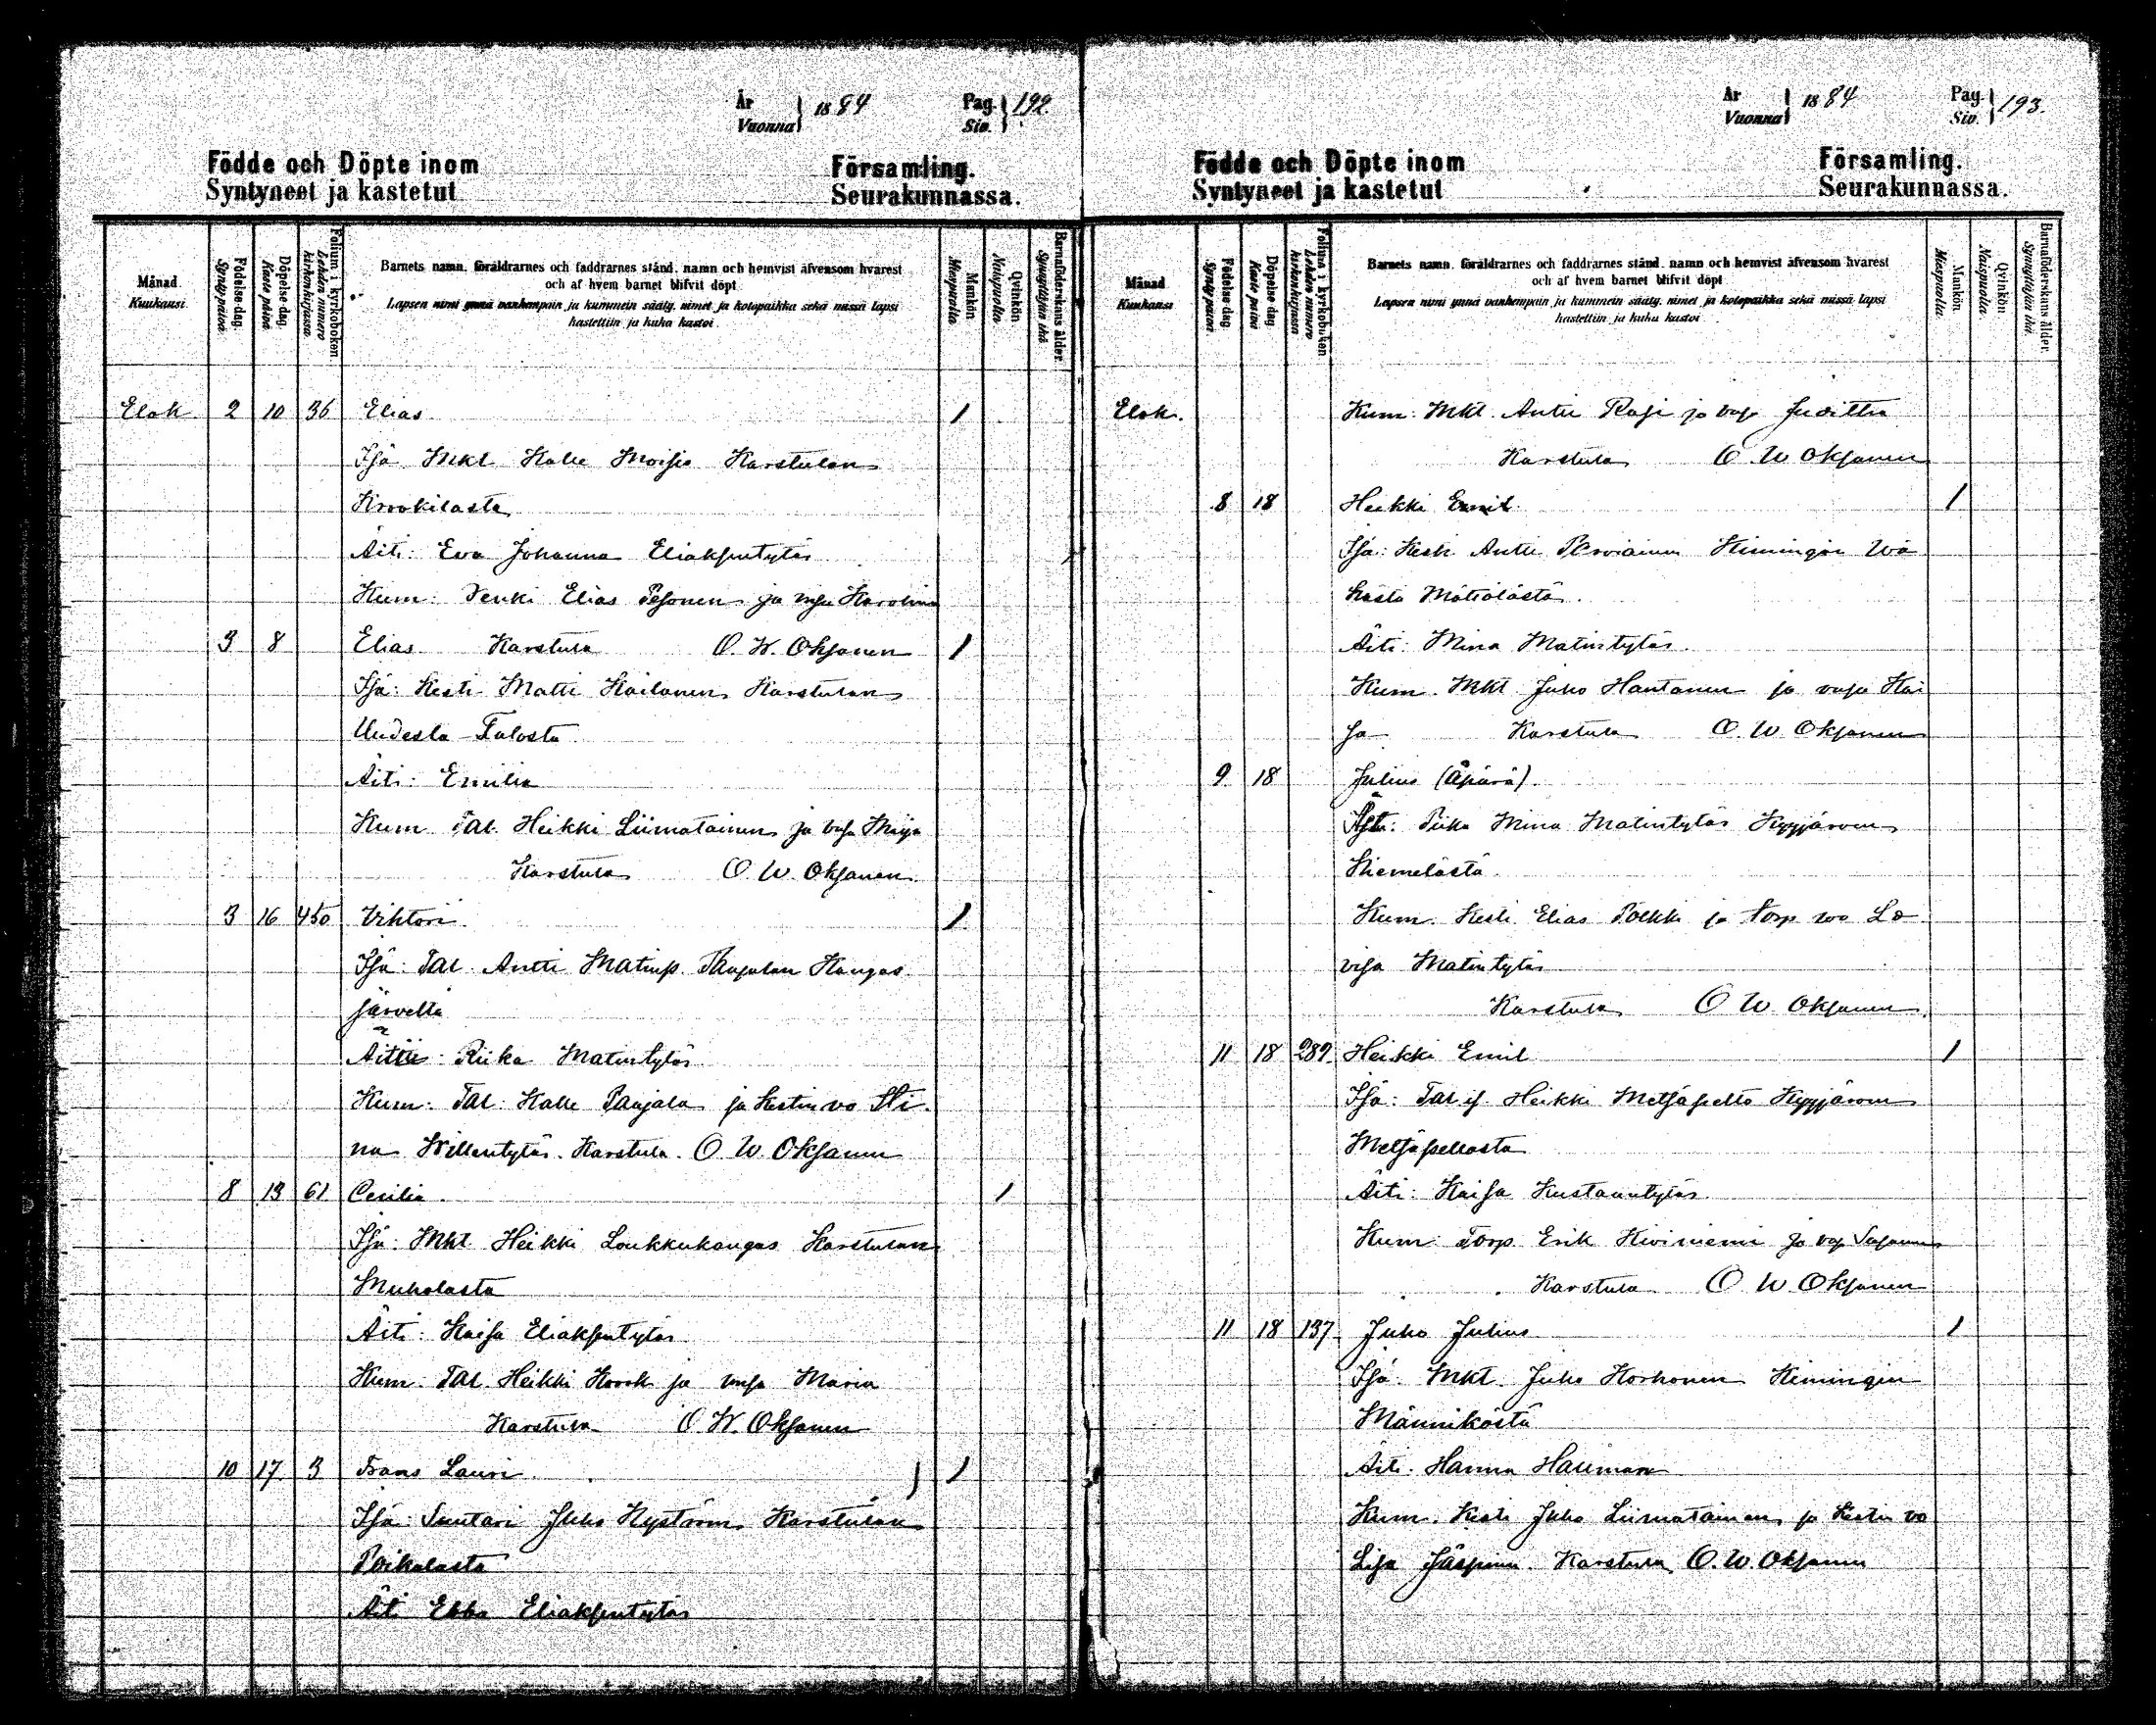 År
Vuonna } 1884
Pag.
Siv. } 192.
Födde och Döpte inom Församling.
Syntyneet ja kastetut Seurakunnassa.
Månad.
Kuukausi.
Födelse-dag.
Synty päivä.
Döpelse-dag.
Kaste päivä
Folium i kyrkoboken.
Lehden numero kirkonkirjassa.
Barnets namn, föräldrarnes och faddrarnes stånd, namn och hemvist äfvensom hvarest
och af hvem barnet blifvit döpt.
Lapsen nimi ynnä vanhempain ja kummein sääty, nimet ja kotopaikka sekä missä lapsi
kastettiin ja kuka kastoi.
Mankön
Miespuolia.
Qvinkön
Naispuolia.
Barnaföderskans ålder.
Synnyttäjän ikä.
Elok. 2 10 36 Elias 1
Isä Mkt Kalle Moisio Karstulan
Krookilasta
Äiti: Eva Johanna Eliaksentytär
Kum: Renki Elias Pesonen ja vmsa Karolina
3 8 Elias Karstula O. W. Oksanen 1
Isä: Kesti Matti Kailanen Karstulan
Uudesta Talosta
Äiti: Emilia
Kum Tal. Heikki Liimatainen ja vsa Maija
Karstula O W. Oksanen
3 16 450 Vihtori 1
Isä: Tal. Antti Matinp. Kangas
järveltä
Äiti: Riika Matintytär
Kum: Tal: Kalle Paajala ja Kestin vo Sti
na Willentytär. Karstula. O W Oksanen
8 13 61 Cecilia. 1
Isä: Mkt. Heikki Loukkukangas Karstulan
Muholasta
Äiti: Kaisa Eliaksentytär
Kum: Tal. Heikki Krook ja vmsa Maria
Karstula O W. Oksanen
10 17 3 Frans Lauri 1
Isä: Suutari Juho Nyström Karstulan
Poikolasta
Äiti Ebba Eliaksentytär
År
Vuonna } 1884
Pag.
Siv. } 193.
Födde och Döpte inom Församling.
Syntyneet ja kastetut Seurakunnassa.
Månad
Kuukausi
Födelse-dag.
Synty päivä.
Döpelse dag.
Kaste päivä
Folium i kyrkoboken
Lehden numero kirkonkirjassa
Barnets namn, föräldrarnes och faddrarnes stånd, namn och hemvist äfvensom hvarest
och af hvem barnet blifvit döpt
Lapsen nimi ynnä vanhempain ja kummein sääty, nimet ja kotopaikka sekä missä lapsi
kastettiin ja kuka kastoi.
Mankön
Miespuolia.
Qvinkön
Naispuolia.
Barnaföderskans ålder.
Synnyttäjän ikä.
Elok. Kum: Mkt. Antti Rasi ja vsa Juditta
Karstula O. W Oksanen
8 18 Heikki Emil. 1
Isä: Kesti Antti Parviainen Kimingin Wä
kästä Mätiälästä.
Äiti: Mina Matintytär.
Kum. Mkt Juho Hantanen ja vmsa Kai
sa Karstula O. W. Oksanen
9 18 Julius (Äpärä).
Äiti: Piika Mina Matintytär Kyyjärven
Niemelästä.
Kum. Kesti Elias Poikki ja torp. vo Lo
visa Matintytär
Karstula O W Oksanen
11 18 289. Heikki Emil 1
Isä: Tal. if. Heikki Metsäpelto Kyyjärven
Metsäpellosta
Äiti: Kaisa Kustaantytär.
Kum: Torp. Erik Kiviniemi ja vsa Susanna
Karstula O W Oksanen
11 18 137. Juho Julius 1
Isä: Mkt. Juho Korhonen Kimingin
Männiköstä
Äiti. Hanna Hariman
Kum. Kesti Juho Liimatainen ja Kestin vo
Lisa Karstula O. W. Oksanen